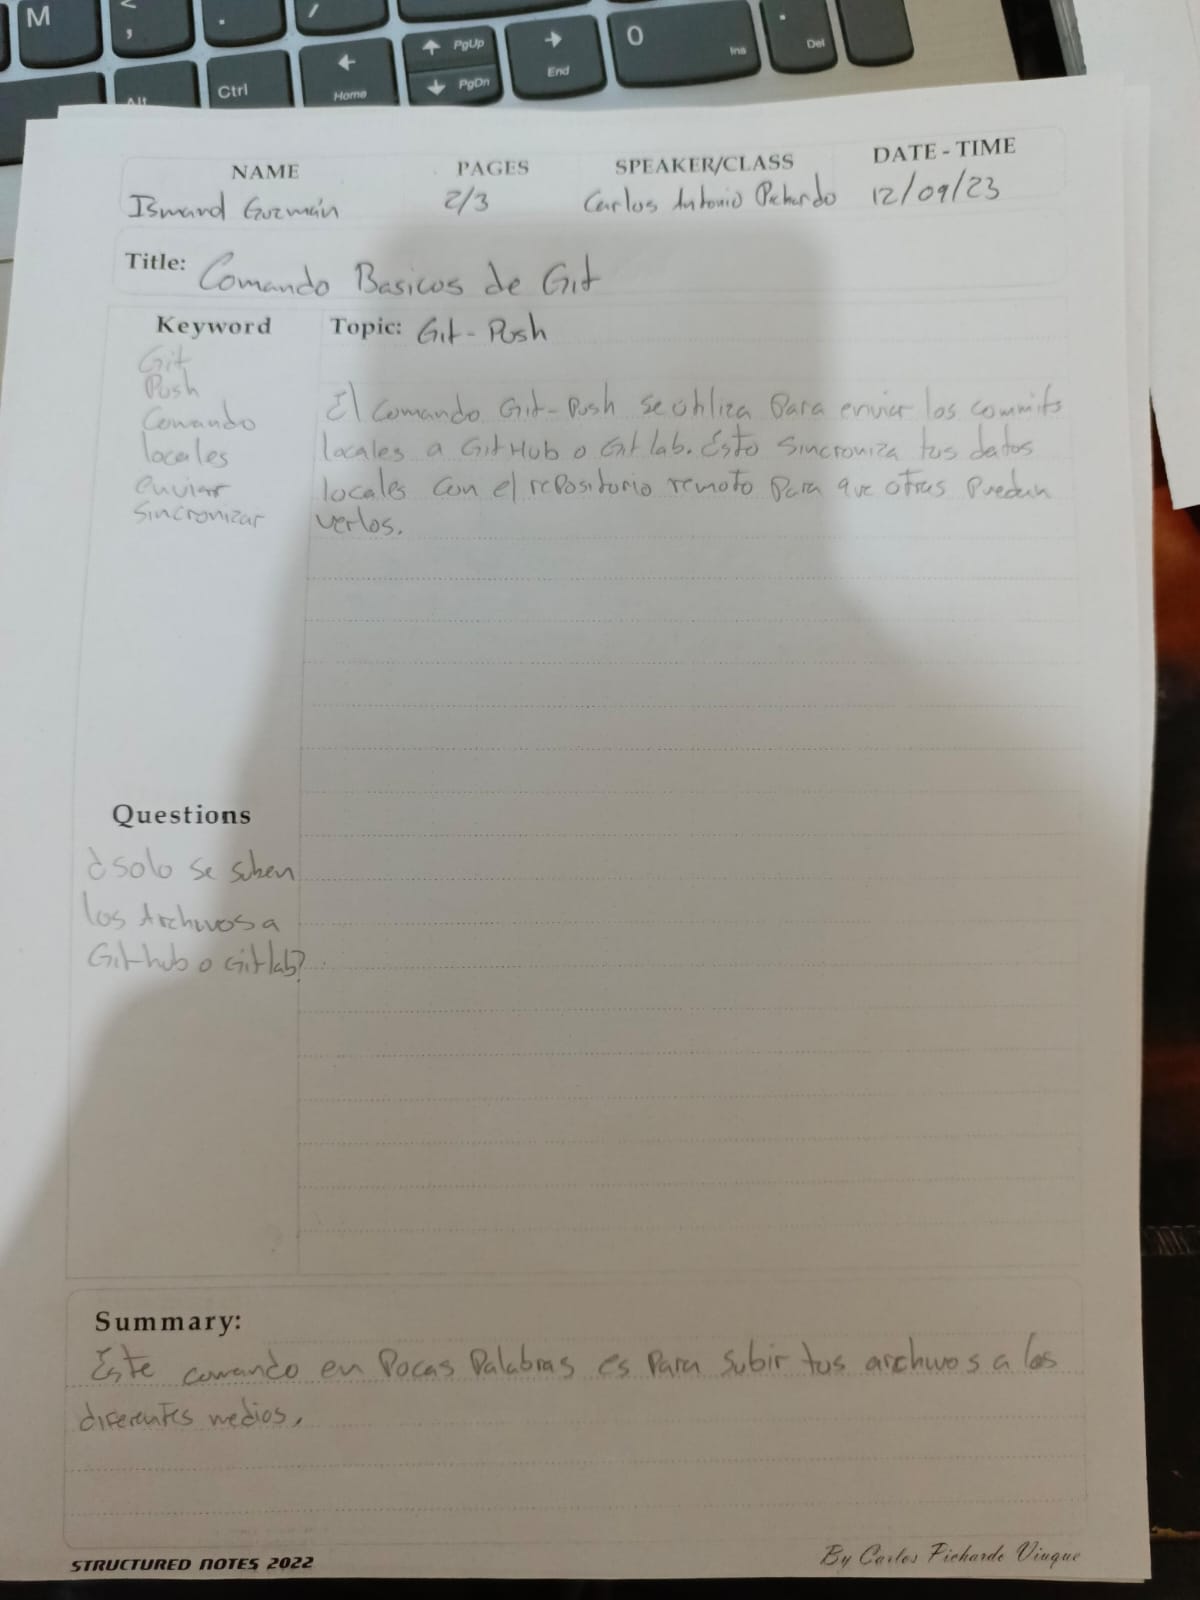 M
<
,
.
/
Alt
Ctrl
Home
PgUp
PgDn
End
0
Ins
.
Del
NAME PAGES SPEAKER/CLASS DATE - TIME
Ismard Guzmán 2/3 Carlos Antonio Pichardo 12/09/23
Title: Comando Basicos de Git
Keyword
Git
Push
Comando
locales
enviar
Sincronizar
Topic: Git - Push
El Comando Git-Push se utiliza para enviar los commits
locales a GitHub o Gitlab. Esto sincroniza tus datos
locales con el repositorio remoto para que otras puedan
verlos.
Questions
¿solo se suben
los Archivos a
Git-hub o gitlab?
Summary:
Este comando en pocas palabras es para subir tus archivos a los
diferentes medios.
STRUCTURED NOTES 2022
By Carlos Pichardo Viuque